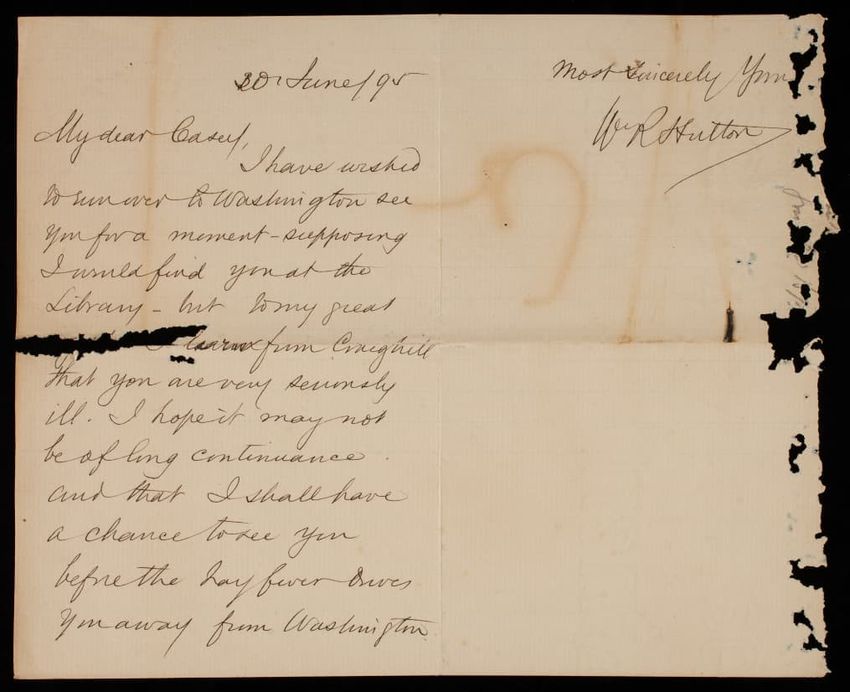 20 June/95
My dear Casey,
I have wished
to run over to Washington see
you for a moment - supposing
I would find you at the
Library - but to my great
I learn from Craighill
that you are very seriously
ill. I hope it may not
be of long continuance
and that I shall have
a chance to see you
before the hay fever drives
you away from Washington
Most Sincerely Your
Wm R Hutton